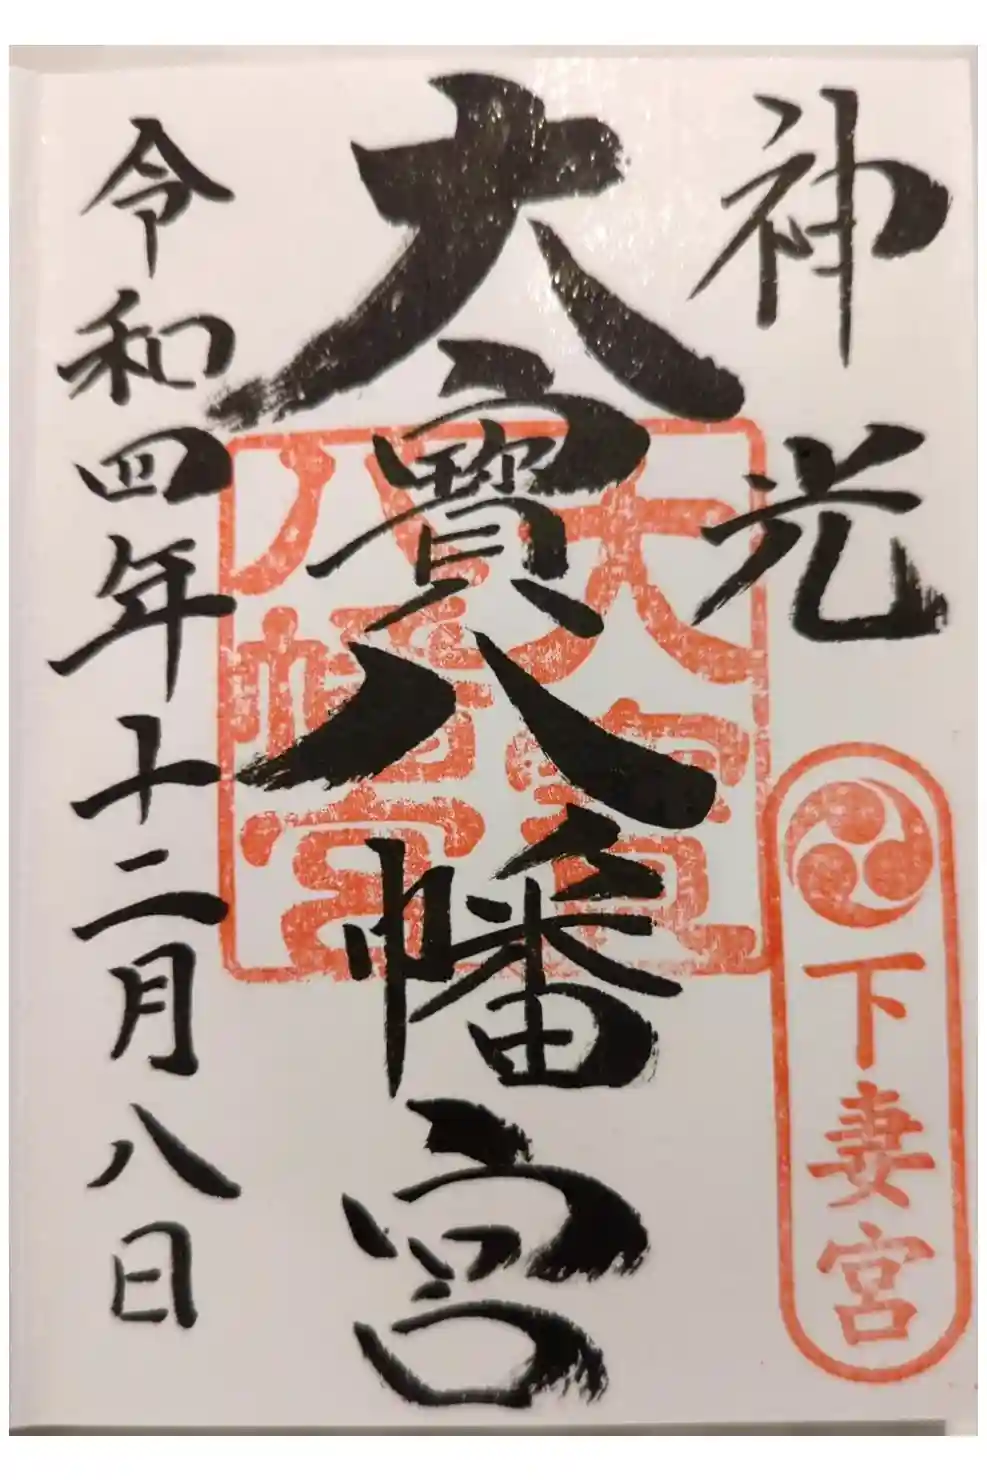 神光
下妻宮
大寳八幡宮
大寳
八幡宮
令和四年十二月八日